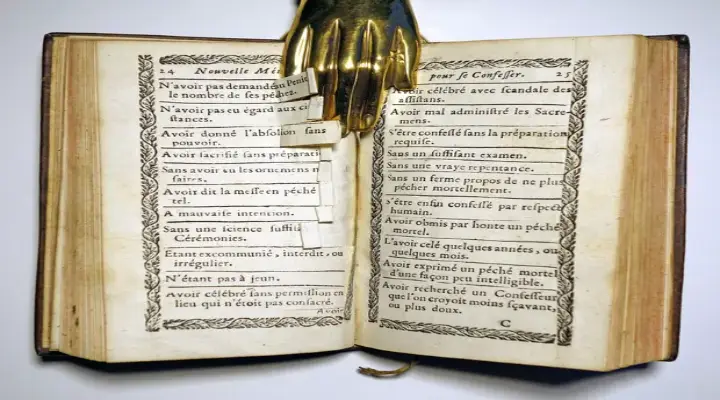 24 Nouvelle Mé
N'avoir pas demandé au Penit
le nombre de ses péchez.
N'avoir pas eu égard aux ci
stances.
Avoir donné l'absolution sans
pouvoir.
Avoir sacrifié sans préparati
Sans avoir eu les ornemens n
saires.
Avoir dit la messe en péché
tel.
A mauvaise intention.
Sans une science suffi
Cérémonies.
Etant excommunié, interdit, ou
irrégulier.
N'étant pas à jeun.
Avoir célébré sans permission en
lieu qui n'étoit pas consacré.
Avoir
pour se Confesser. 25
Avoir célébré avec scandale des
assistans.
Avoir mal administré les Sacre-
mens.
S'être confessé sans la préparation
requise.
Sans un suffisant examen.
Sans une vraye repentance.
Sans un ferme propos de ne plus
pécher mortellement.
S'être enfin confessé par respect
humain.
Avoir obmis par honte un péché
mortel.
L'avoir celé quelques années, ou
quelques mois.
Avoir exprimé un péché mortel
d'une façon peu intelligible.
Avoir recherché un Confesseur
que l'on croyoit moins sçavant,
ou plus doux.
C